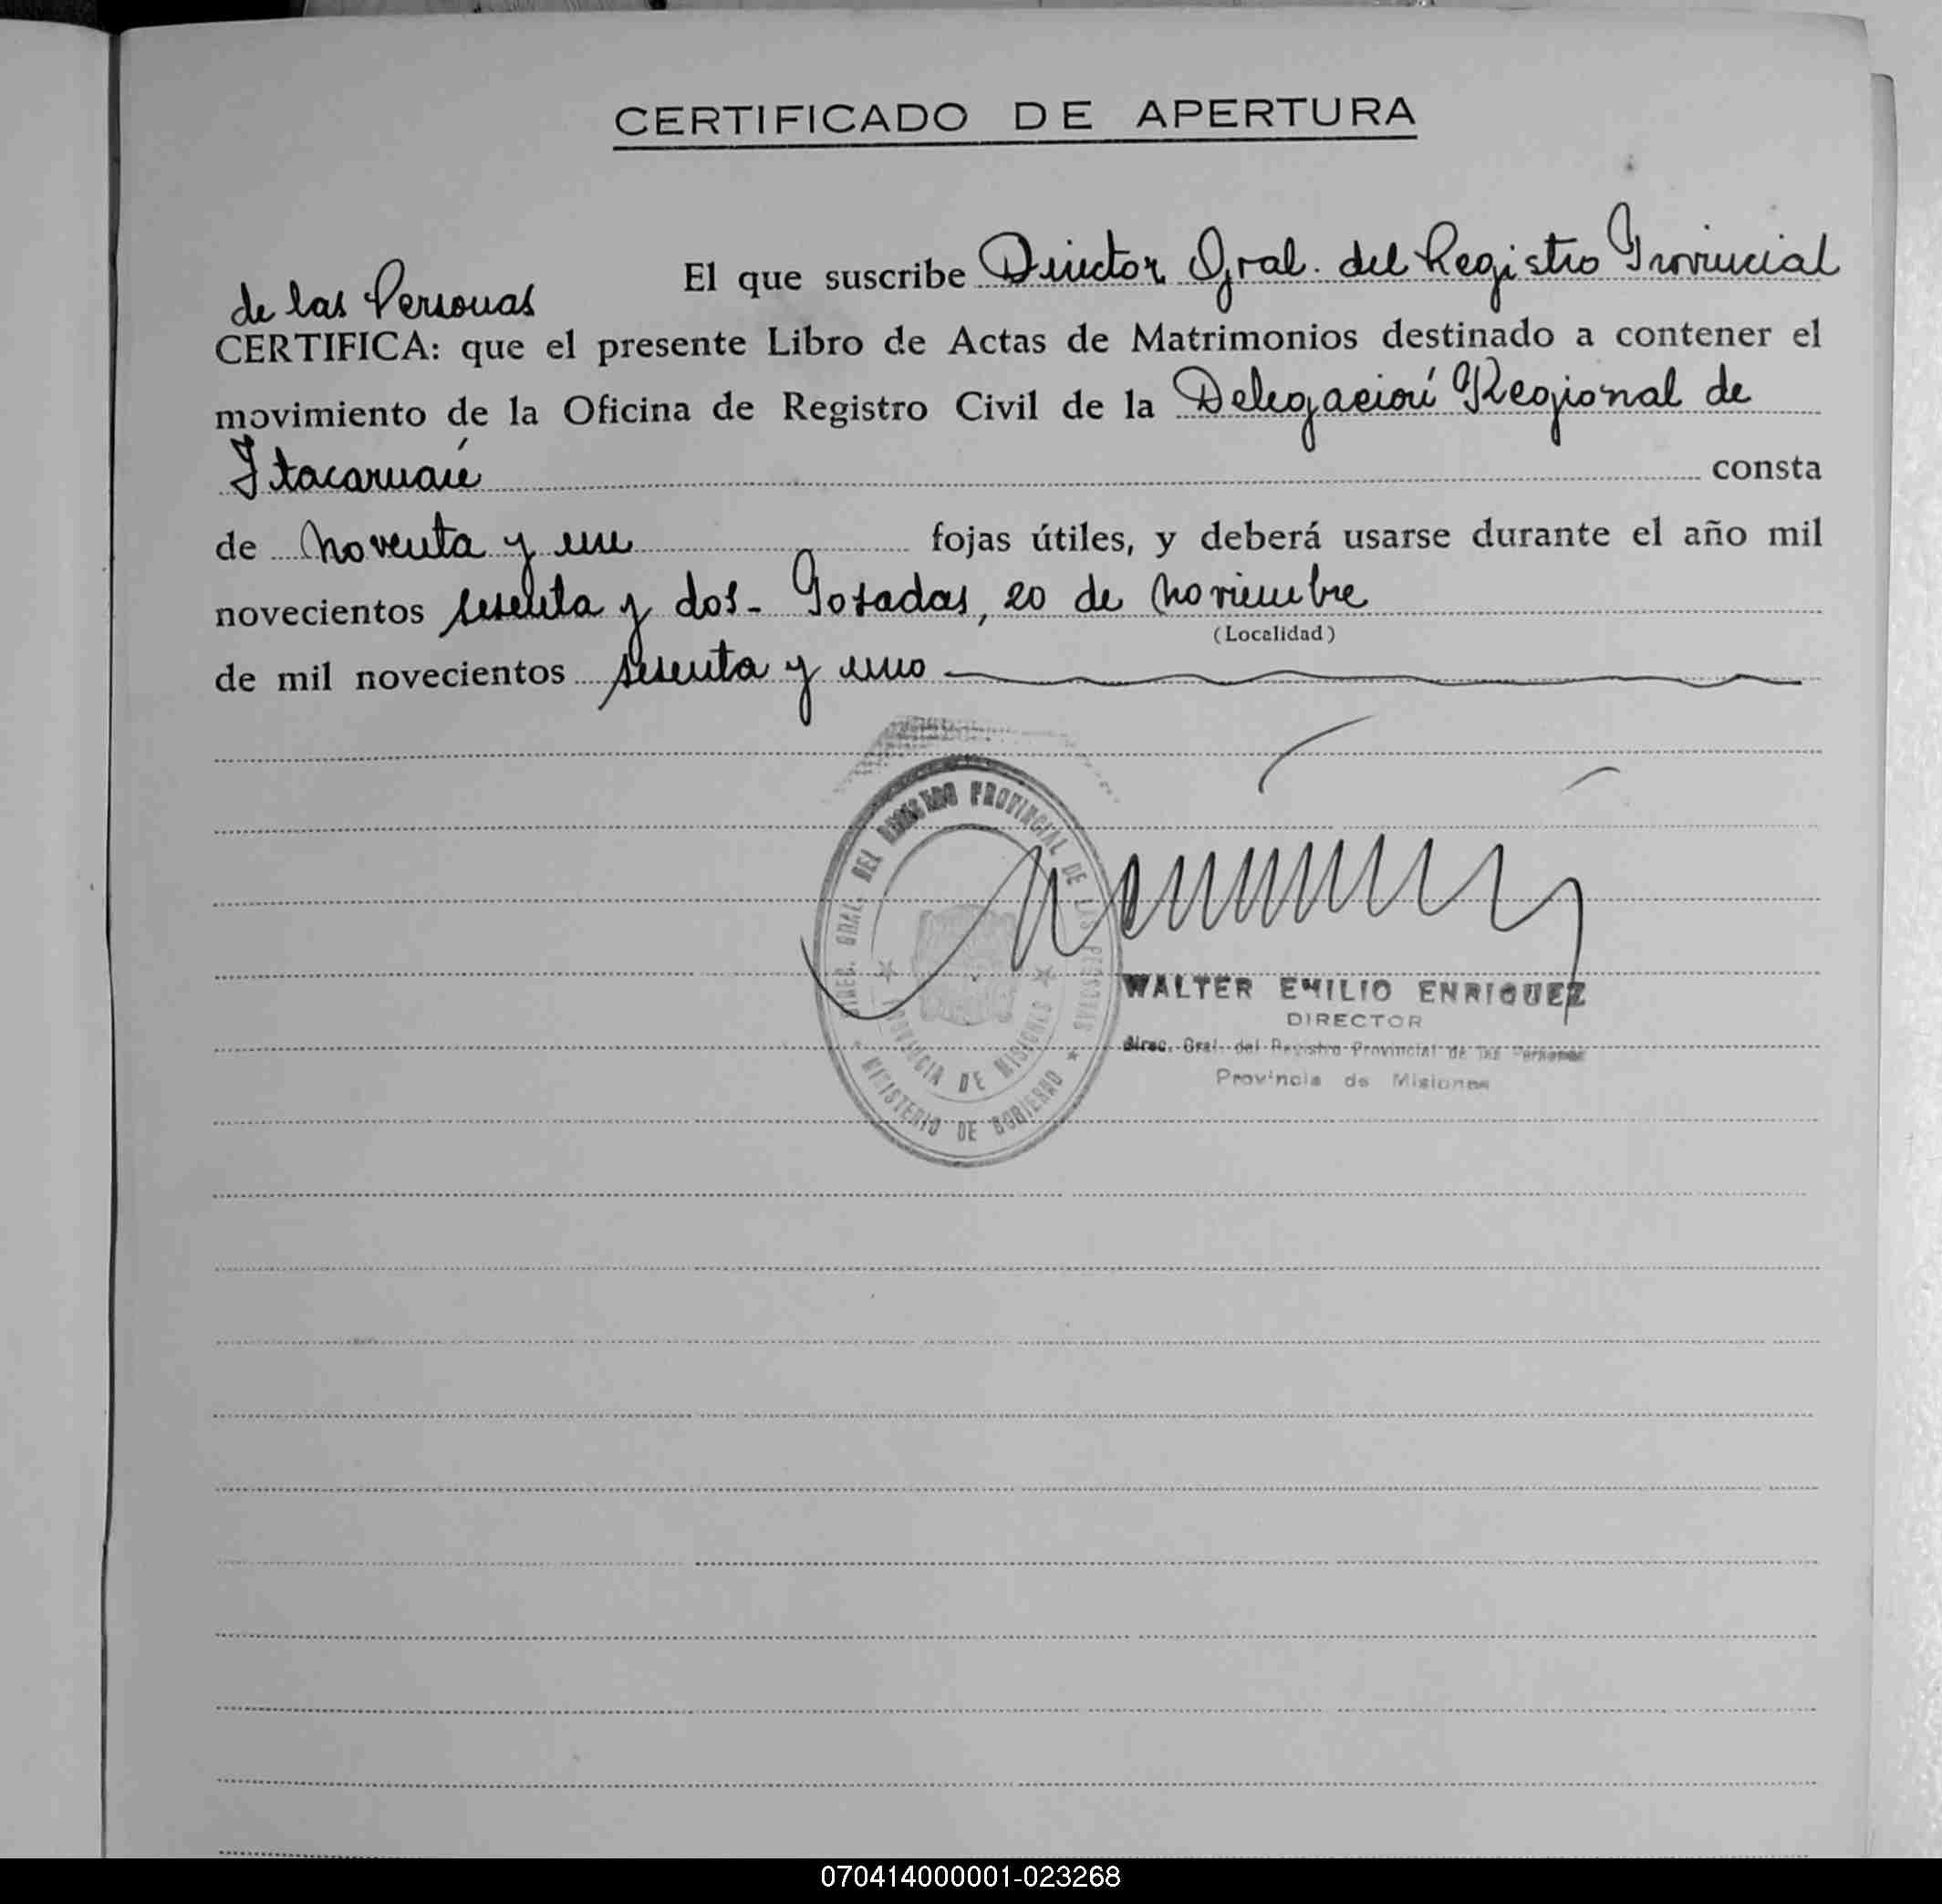 CERTIFICADO DE APERTURA
El que suscribe Director Gral. del Registro Provincial
de las Personas
CERTIFICA: que el presente Libro de Actas de Matrimonios destinado a contener el
movimiento de la Oficina de Registro Civil de la Delegación Regional de
Itacaruaré consta
de noventa y un fojas útiles, y deberá usarse durante el año mil
novecientos sesenta y dos- Posadas, 20 de noviembre
(Localidad)
de mil novecientos sesenta y uno
DIREC. GRAL. DEL REGISTRO PROVINCIAL DE LAS PERSONAS
PROVINCIA DE MISIONES
MINISTERIO DE GOBIERNO
WALTER EMILIO ENRIQUEZ
DIRECTOR
Direc. Gral. del Registro Provincial de las Personas
Provincia de Misiones
070414000001-023268